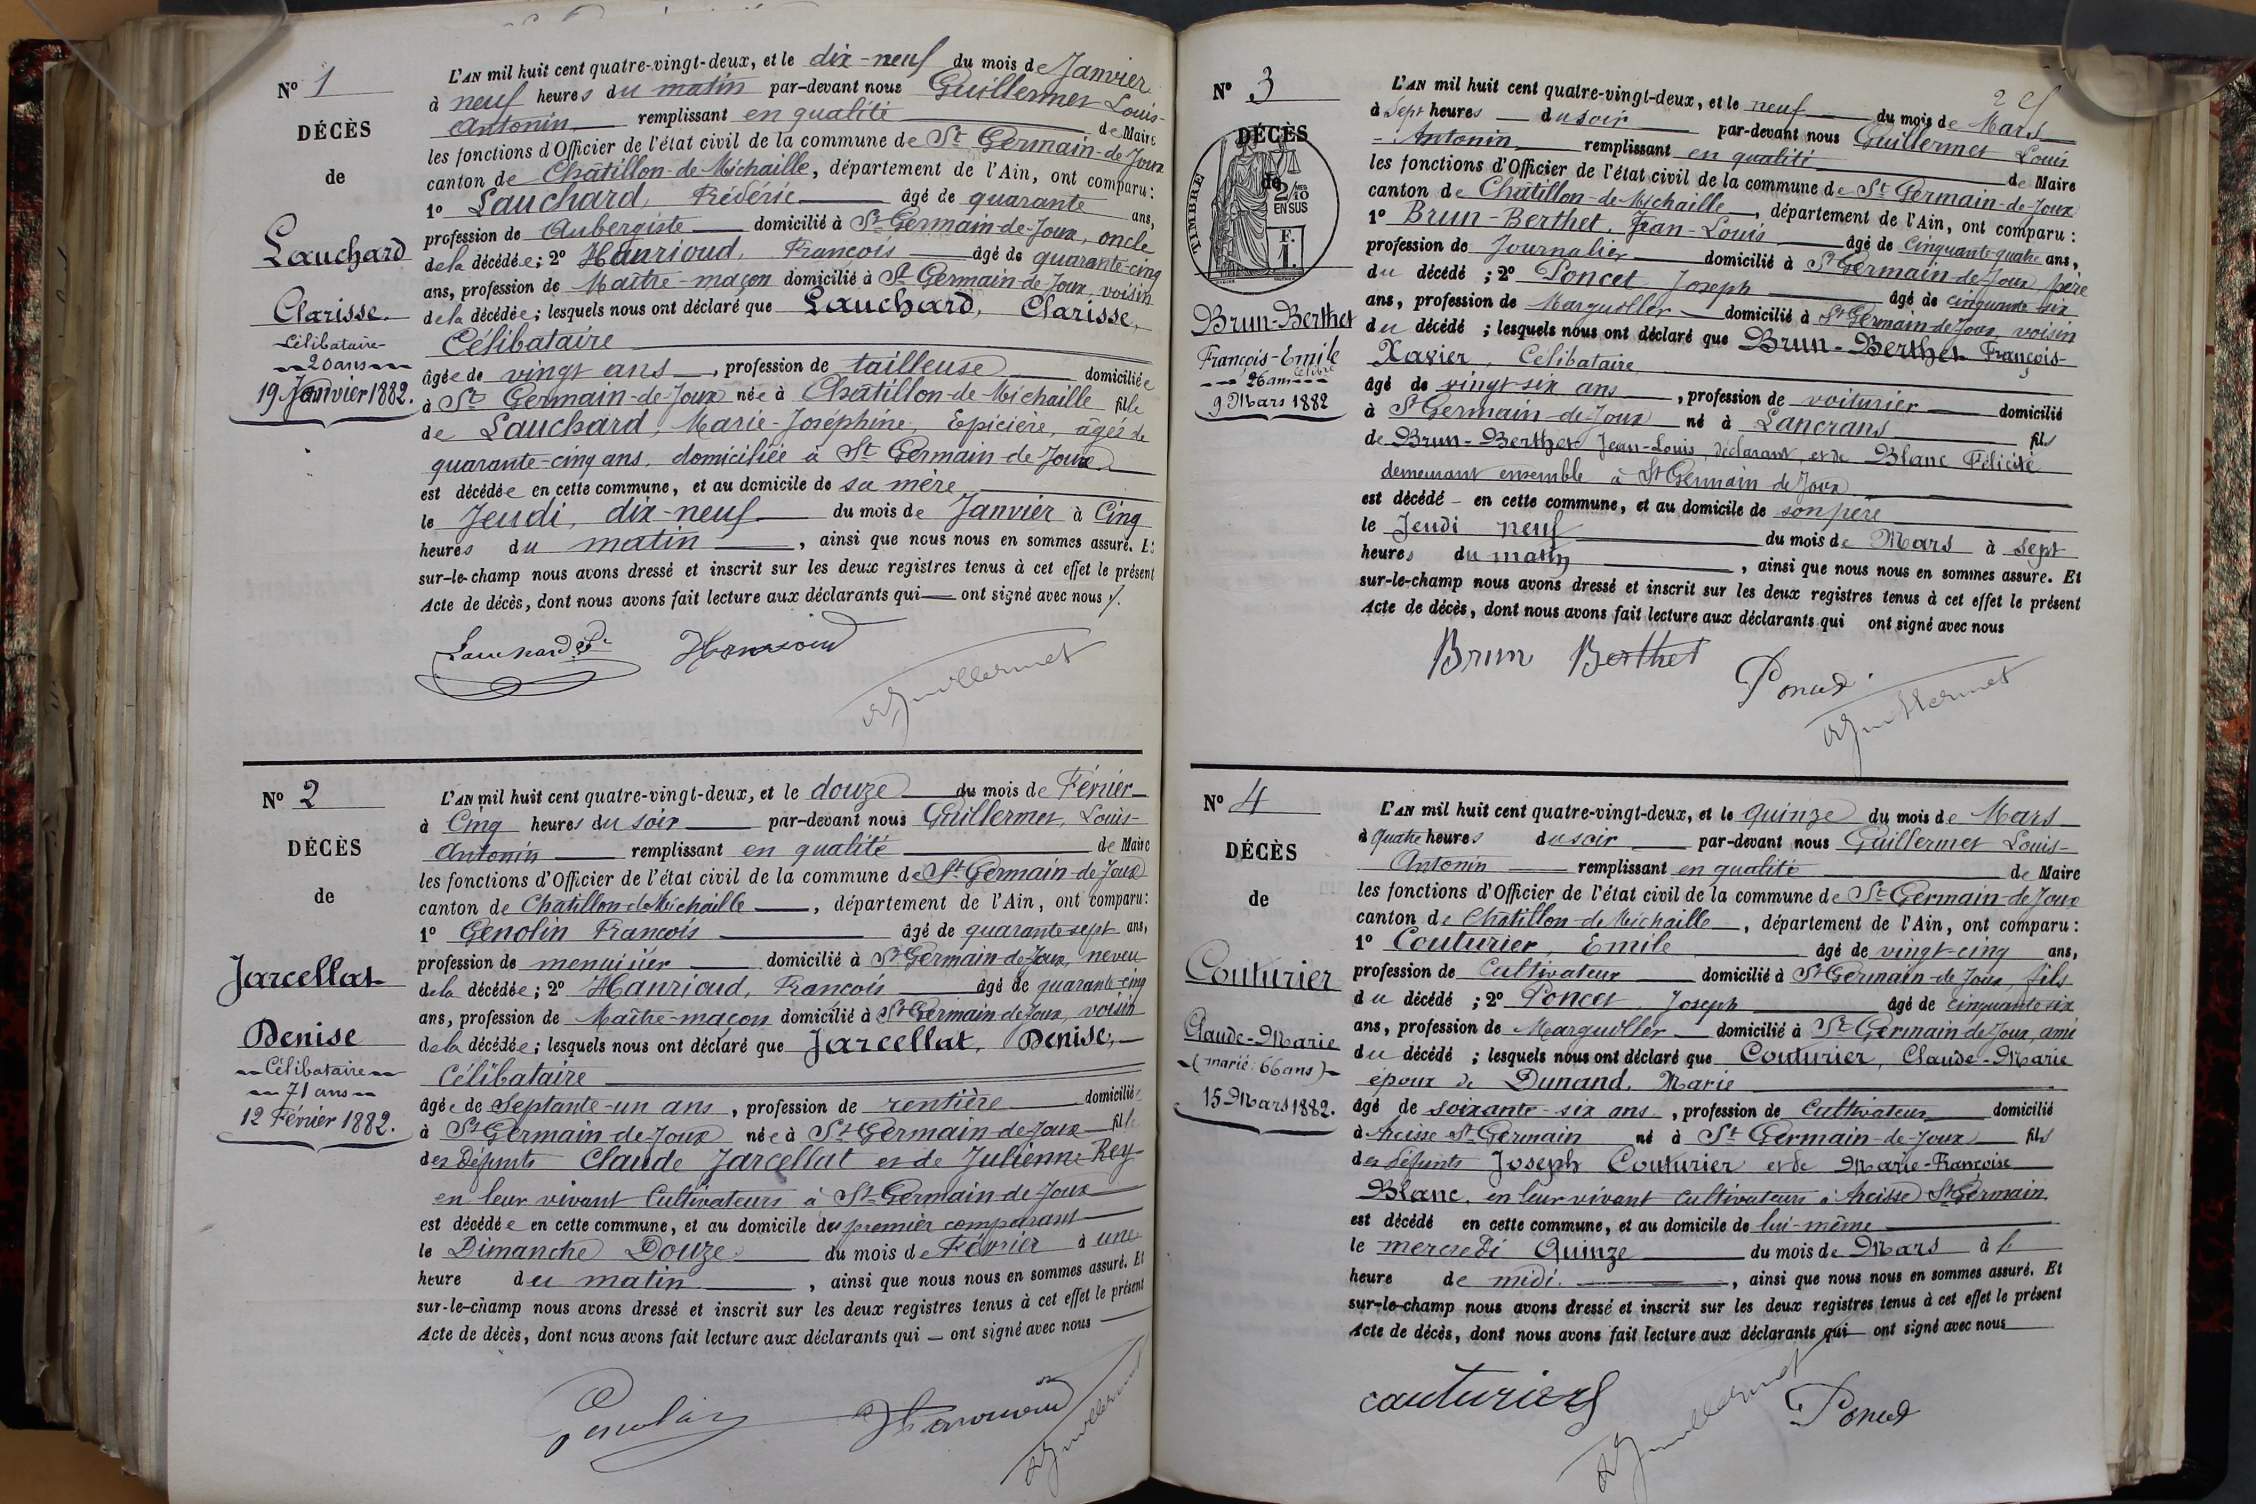 Nº 1
DÉCÈS
de
Lauchard
Clarisse.
Célibataire
20 ans
19 Janvier 1882.
L'AN mil huit cent quatre-vingt-deux, et le dix-neuf du mois de Janvier
à neuf heures du matin par-devant nous Guillermet Louis-
Antonin remplissant en qualité de Maire
les fonctions d'Officier de l'état civil de la commune de St Germain-de-Joux
canton de Châtillon-de-Michaille, département de l'Ain, ont comparu :
1º Lauchard, Frédéric âgé de quarante ans,
profession de Aubergiste domicilié à St Germain-de-Joux, oncle
de la décédée ; 2º Hanrioud, François âgé de quarante-cinq
ans, profession de Maître-maçon domicilié à St Germain-de-Joux, voisin
de la décédée ; lesquels nous ont déclaré que Lauchard, Clarisse,
Célibataire
âgée de vingt ans, profession de tailleuse domiciliée
à St Germain-de-Joux née à Châtillon-de-Michaille fille
de Lauchard, Marie-Joséphine, Epicière, âgée de
quarante-cinq ans, domiciliée à St Germain-de-Joux
est décédée en cette commune, et au domicile de sa mère
le Jeudi, dix-neuf du mois de Janvier à Cinq
heures du matin, ainsi que nous nous en sommes assuré. Et
sur-le-champ nous avons dressé et inscrit sur les deux registres tenus à cet effet le présent
Acte de décès, dont nous avons fait lecture aux déclarants qui ont signé avec nous
Lauchard Hanrioud
Guillermet
Nº 2
DÉCÈS
de
Jarcellat
Denise
Célibataire
71 ans
12 Février 1882.
L'AN mil huit cent quatre-vingt-deux, et le douze du mois de Février
à Cinq heures du soir par-devant nous Guillermet, Louis-
Antonin remplissant en qualité de Maire
les fonctions d'Officier de l'état civil de la commune de St Germain-de-Joux
canton de Chatillon-de-Michaille, département de l'Ain, ont comparu :
1º Genolin François âgé de quarante-sept ans,
profession de menuisier domicilié à St Germain-de-Joux, neveu
de la décédée ; 2º Hanrioud, François âgé de quarante-cinq
ans, profession de Maître-maçon domicilié à St Germain-de-Joux, voisin
de la décédée ; lesquels nous ont déclaré que Jarcellat, Denise,
Célibataire
âgée de Septante-un ans, profession de rentière domiciliée
à St Germain-de-Joux née à St Germain-de-Joux fille
des Défunts Claude Jarcellat et de Julienne Rey
en leur vivant Cultivateurs à St Germain-de-Joux
est décédée en cette commune, et au domicile du premier comparant
le Dimanche Douze du mois de Février à une
heure du matin, ainsi que nous nous en sommes assuré. Et
sur-le-champ nous avons dressé et inscrit sur les deux registres tenus à cet effet le présent
Acte de décès, dont nous avons fait lecture aux déclarants qui ont signé avec nous
Genolin Hanrioud Guillermet
Nº 3
DÉCÈS
de
TIMBRE
2/10
EN SUS
Brun-Berthet
François-Emile
26 ans célibre
9 Mars 1882
L'AN mil huit cent quatre-vingt-deux, et le neuf du mois de Mars
à Sept heures du soir par-devant nous Guillermet Louis
-Antonin remplissant en qualité de Maire
les fonctions d'Officier de l'état civil de la commune de St Germain-de-Joux
canton de Châtillon-de-Michaille, département de l'Ain, ont comparu :
1º Brun-Berthet, Jean-Louis âgé de Cinquante-quatre ans,
profession de Journalier domicilié à St Germain-de-Joux père
du décédé ; 2º Poncet Joseph âgé de cinquante six
ans, profession de Marguiller domicilié à St Germain-de-Joux, voisin
du décédé ; lesquels nous ont déclaré que Brun-Berthet François-
Xavier, Célibataire
âgé de vingt-six ans, profession de voiturier domicilié
à St Germain-de-Joux né à Lancrans fils
de Brun-Berthet Jean-Louis, déclarant, et de Blanc Félicité
demeurant ensemble à St Germain de Joux
est décédé en cette commune, et au domicile de son père
le Jeudi neuf du mois de Mars à sept
heures du matin, ainsi que nous nous en sommes assuré. Et
sur-le-champ nous avons dressé et inscrit sur les deux registres tenus à cet effet le présent
Acte de décès, dont nous avons fait lecture aux déclarants qui ont signé avec nous
Brun Berthet Poncet
Guillermet
Nº 4
DÉCÈS
de
Couturier
Claude-Marie
(marié 66 ans)
15 Mars 1882.
L'AN mil huit cent quatre-vingt-deux, et le quinze du mois de Mars
à quatre heures du soir par-devant nous Guillermet Louis-
Antonin remplissant en qualité de Maire
les fonctions d'Officier de l'état civil de la commune de St Germain-de-Joux
canton de Châtillon-de-Michaille, département de l'Ain, ont comparu :
1º Couturier, Emile âgé de vingt-cinq ans,
profession de Cultivateur domicilié à St Germain-de-Joux, fils
du décédé ; 2º Poncet, Joseph âgé de cinquante six
ans, profession de Marguiller domicilié à St Germain de Joux, ami
du décédé ; lesquels nous ont déclaré que Couturier, Claude-Marie
époux de Dunand, Marie
âgé de soixante-six ans, profession de Cultivateur domicilié
à St Germain né à St Germain-de-Joux fils
des défunts Joseph Couturier et de Marie-Françoise
Blanc, en leur vivant cultivateurs à St Germain
est décédé en cette commune, et au domicile de lui-même
le mercredi Quinze du mois de Mars à l
heure de midi, ainsi que nous nous en sommes assuré. Et
sur-le-champ nous avons dressé et inscrit sur les deux registres tenus à cet effet le présent
Acte de décès, dont nous avons fait lecture aux déclarants qui ont signé avec nous
couturier Guillermet Poncet